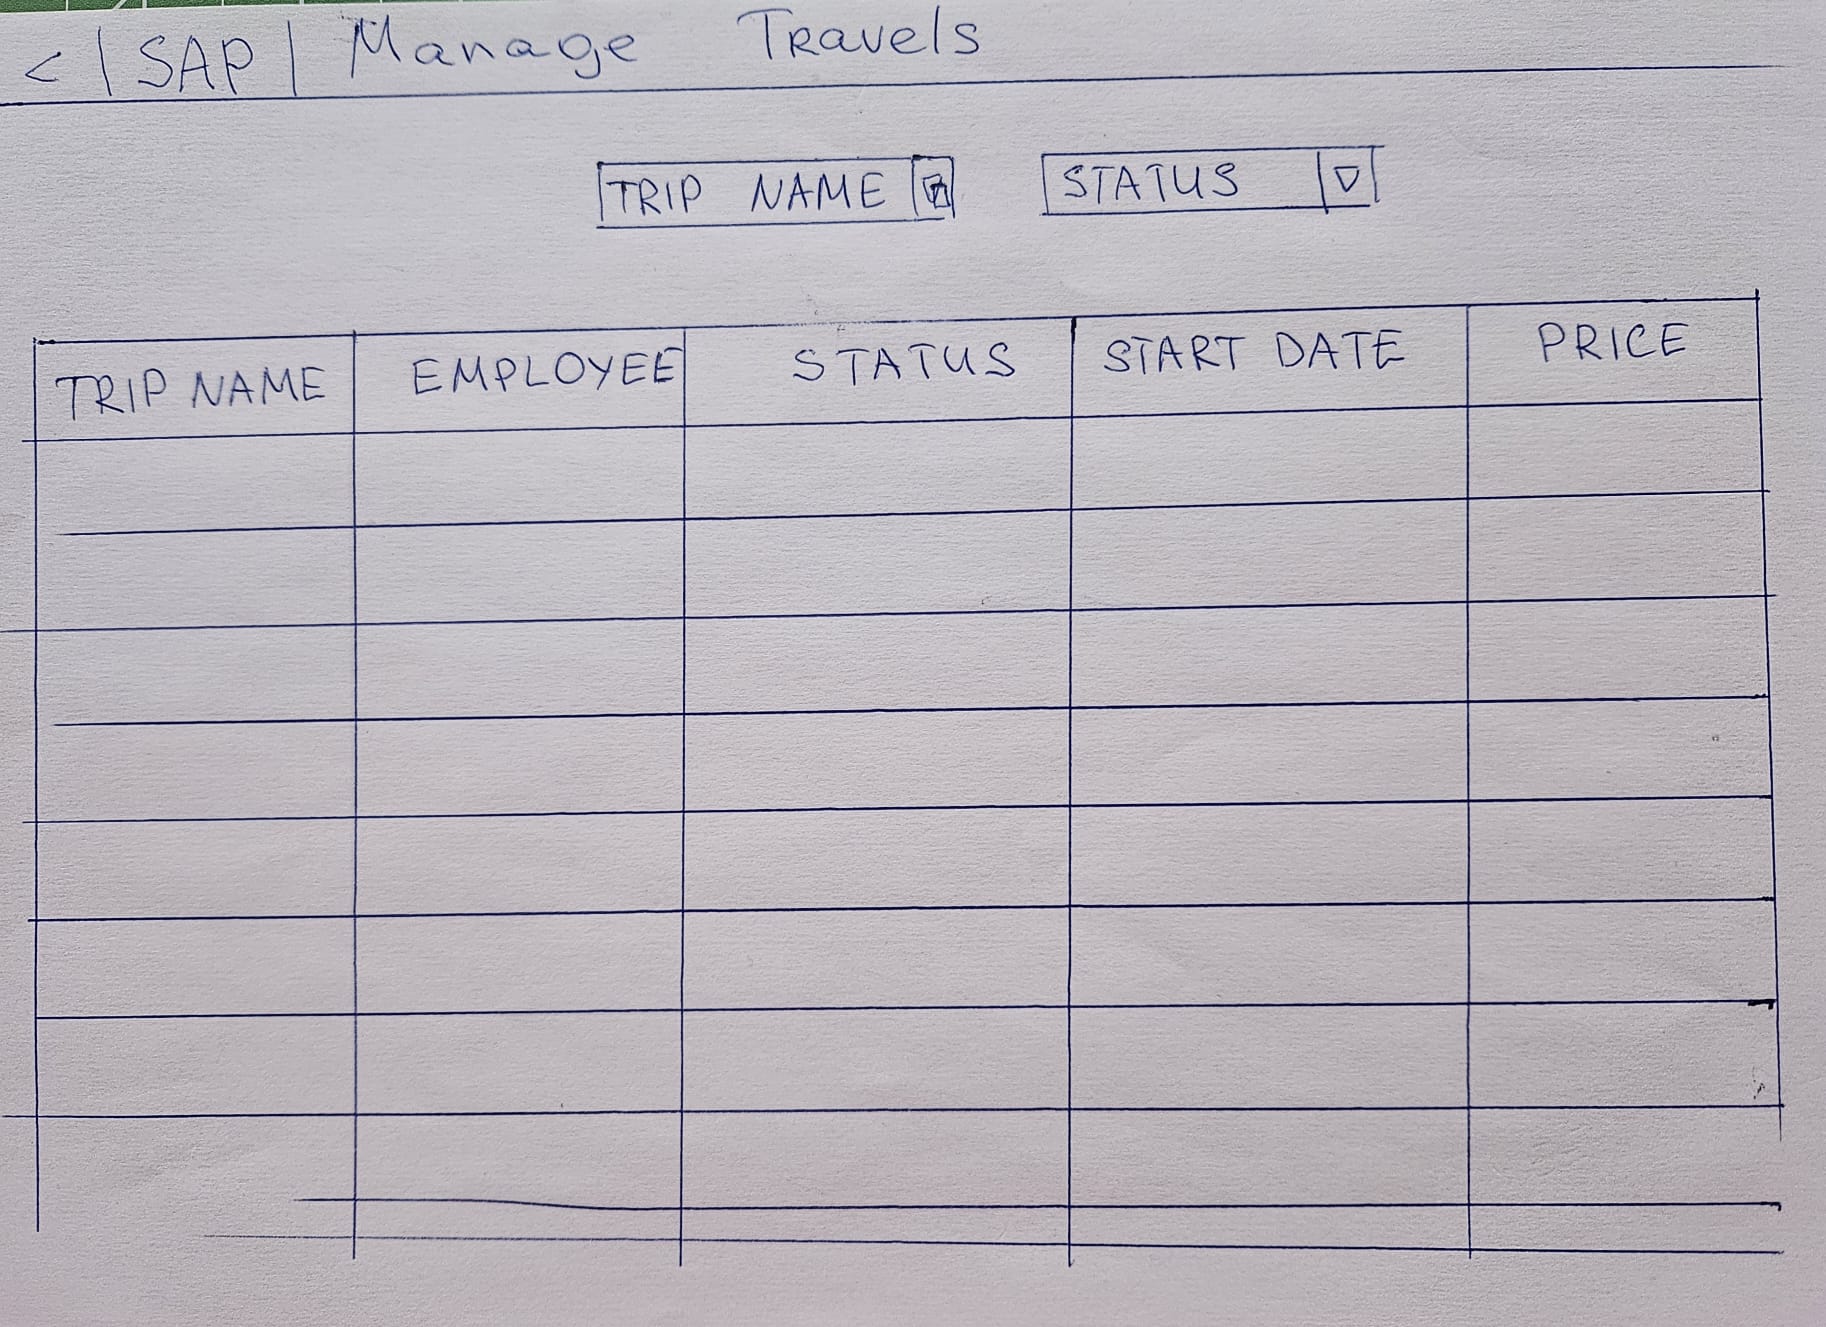 < | SAP | Manage Travels
TRIP NAME STATUS
TRIP NAME EMPLOYEE STATUS START DATE PRICE